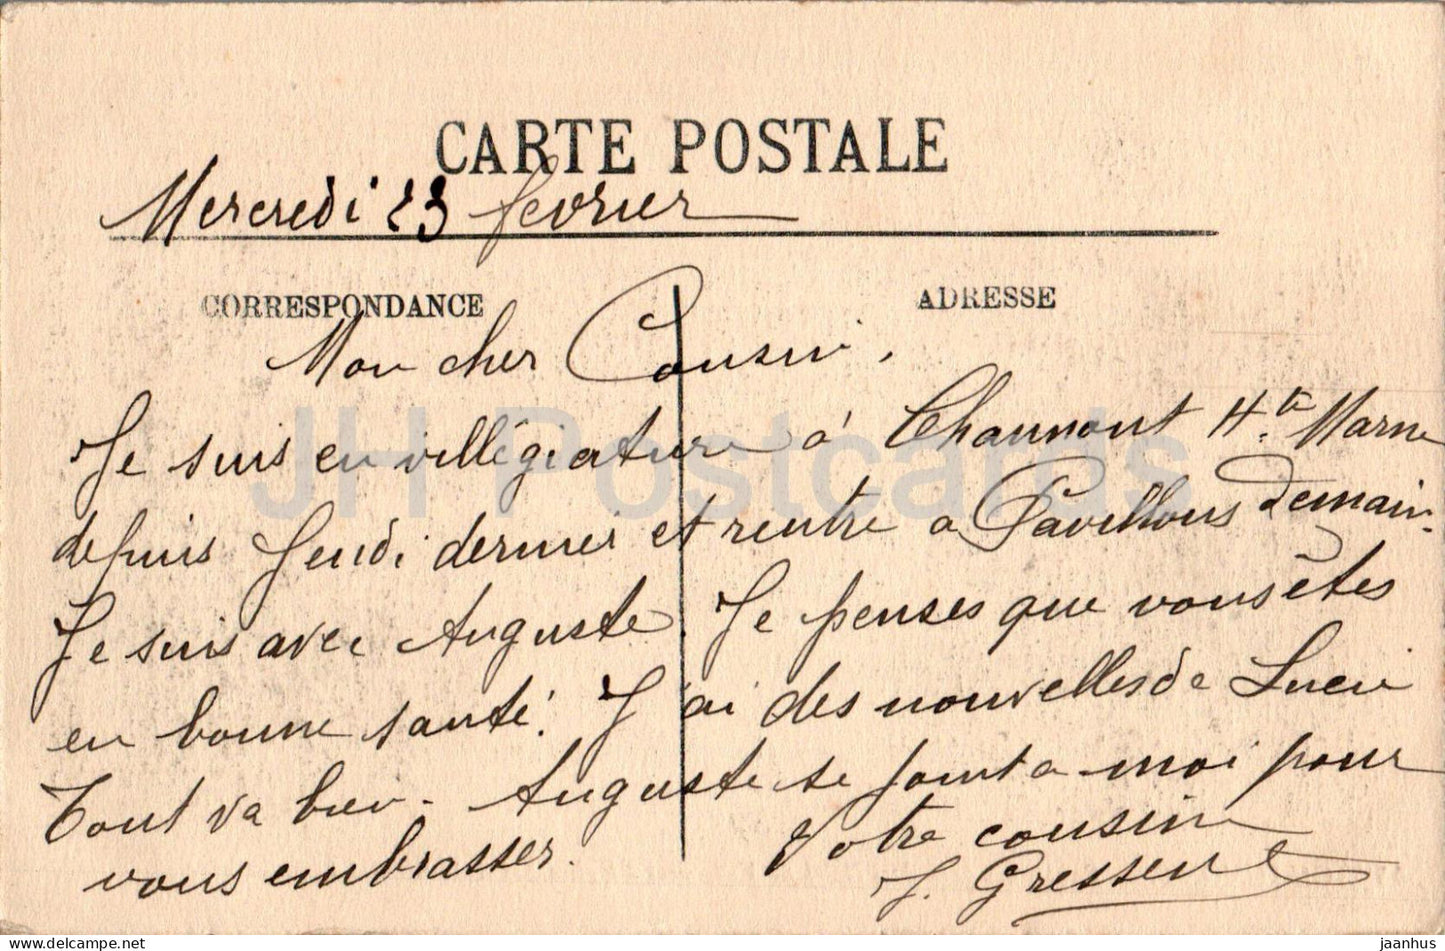 CARTE POSTALE
Mercredi 23 février
CORRESPONDANCE
ADRESSE
Mon cher Cousin,
Je suis en villégiature à Chaumont Hte Marne
depuis Jeudi dernier et rentre a Pavillons demain.
Je suis avec Auguste. Je penses que vous êtes
en bonne santé. J'ai des nouvelles de Lucien
Tout va bien. Auguste se joint a moi pour
vous embrasser. Votre cousin
J. Gressent
JH Postcards
delcampe.net
jaanhus